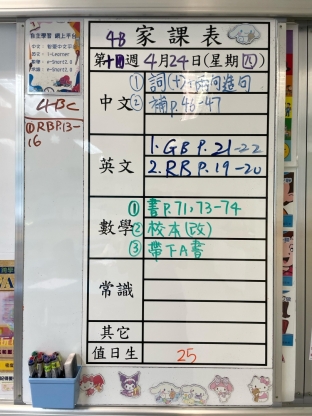 自主學習 網上平台
4B 家課表
第十四週 4月24日(星期四)
中文
①詞(十)
②補P.46-47
4BC
①RBP.13-16
英文
1. GB P.21-22
2. RB P.19-20
數學
①書P.71,73-74
②校本(改)
③帶下A書
常識
其它
值日生
25